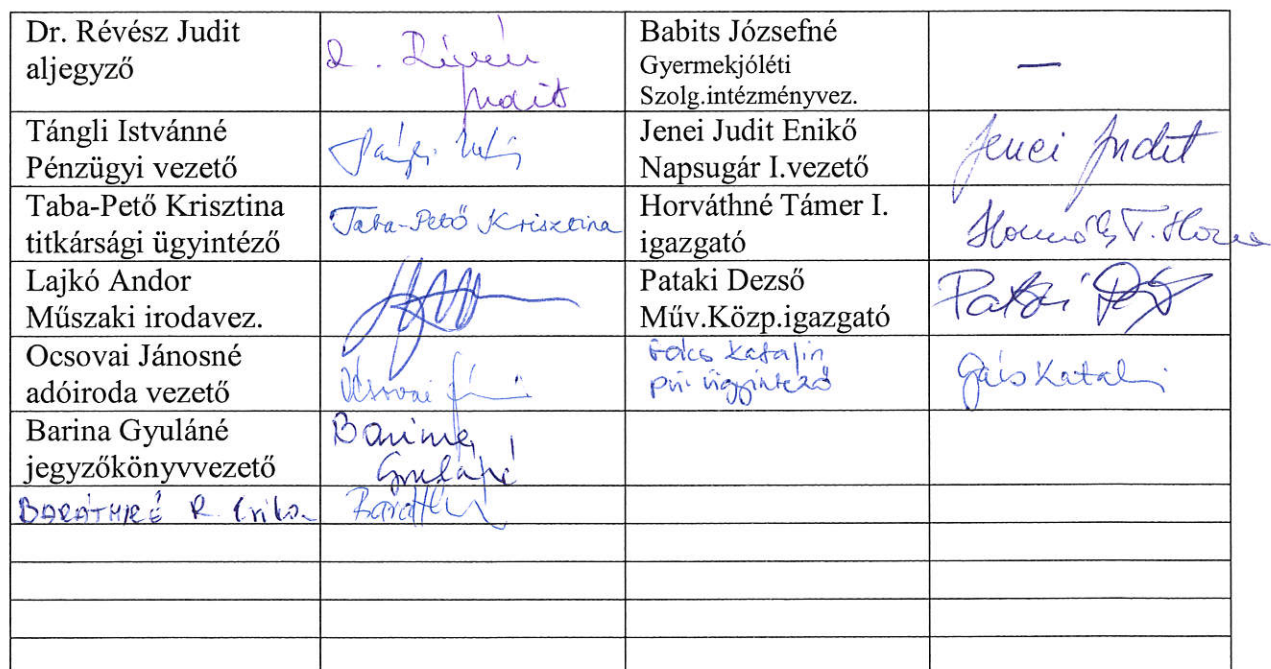 Dr. Révész Judit
aljegyző
Judit
Babits Józsefné
Gyermekjóléti
Szolg.intézményvez.
—
Tángli Istvánné
Pénzügyi vezető
Jenei Judit Enikő
Napsugár I.vezető
Jenei Judit
Taba-Pető Krisztina
titkársági ügyintéző
Taba-Pető Krisztina
Horváthné Támer I.
igazgató
Lajkó Andor
Műszaki irodavez.
Pataki Dezső
Műv.Közp.igazgató
Pataki
Ocsovai Jánosné
adóiroda vezető
Ocsovai
Katalin
pü. ügyintéző
Katalin
Barina Gyuláné
jegyzőkönyvvezető
Barina
Gyuláné
BARÁTHNÉ R. Erika